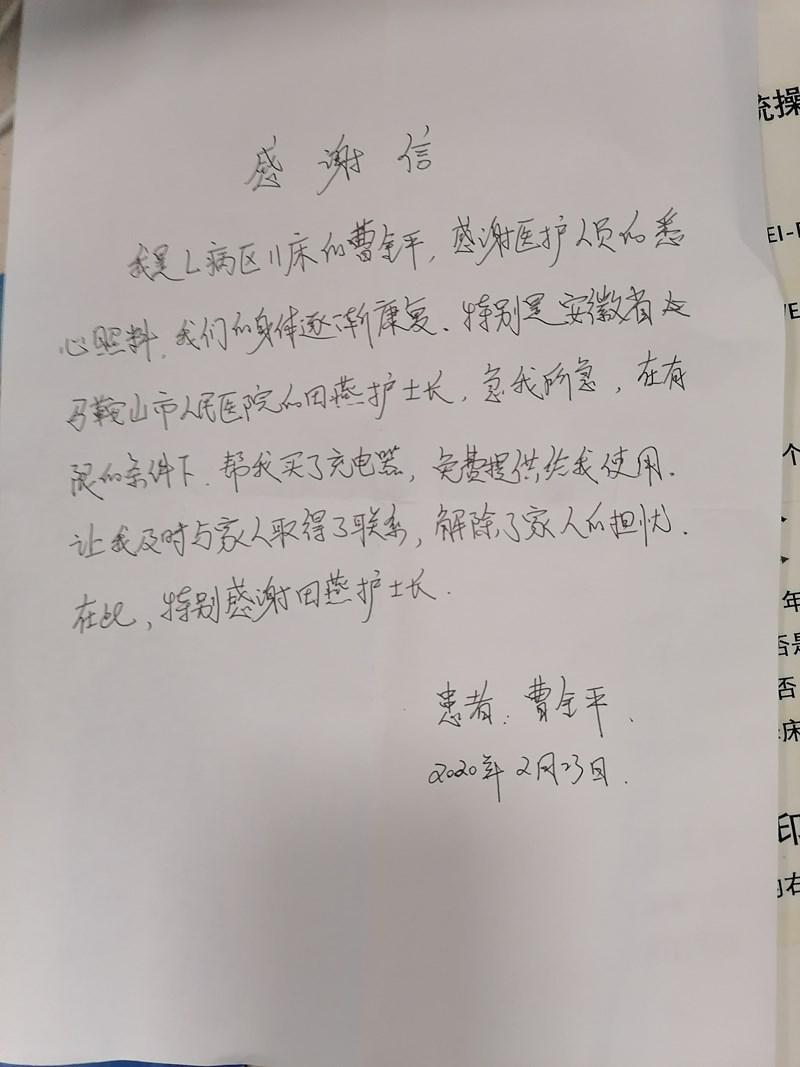 感谢信
我是L病区11床的曹全平,感谢医护人员的悉
心照料,我们的身体逐渐康复、特别是安徽省
马鞍山市人民医院的田燕护士长,急我所急,在有
限的条件下.帮我买了充电器,免费提供给我使用.
让我及时与家人取得了联系,解除了家人的担忧.
在此,特别感谢田燕护士长.
患者:曹全平、
2020年2月23日.
统操
EI-
个
年
否是
否
床
印
右